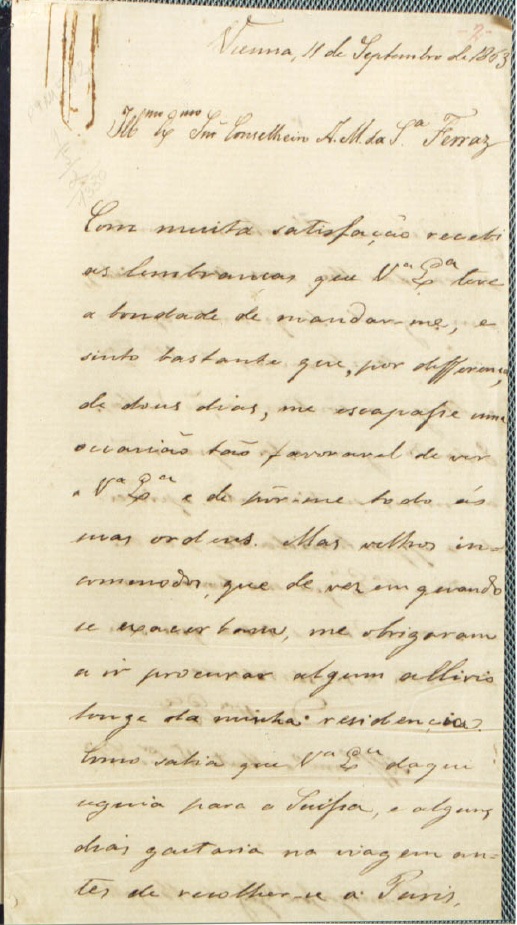 2
Vienna, 11 de Septembro de 1863
Illmo Exmo Snr Conselheiro A. M. da Sa Ferraz
Com muita satisfação recebi
as lembranças que Va Exa teve
a bondade de mandar-me, e
sinto bastante que, por differença
de dous dias, me escapasse uma
occasião tão favoravel de ver
a Va Exa e de pôr-me todo ás
suas ordens. Mas velhos in-
commodos, que de vez em quando
se exacerbam, me obrigaram
a ir procurar algum allivio
longe da minha residencia.
Como sabia que Va Exa daqui
seguia para a Suissa, e alguns
dias gastaria na viagem an-
tes de recolher-se a Paris,